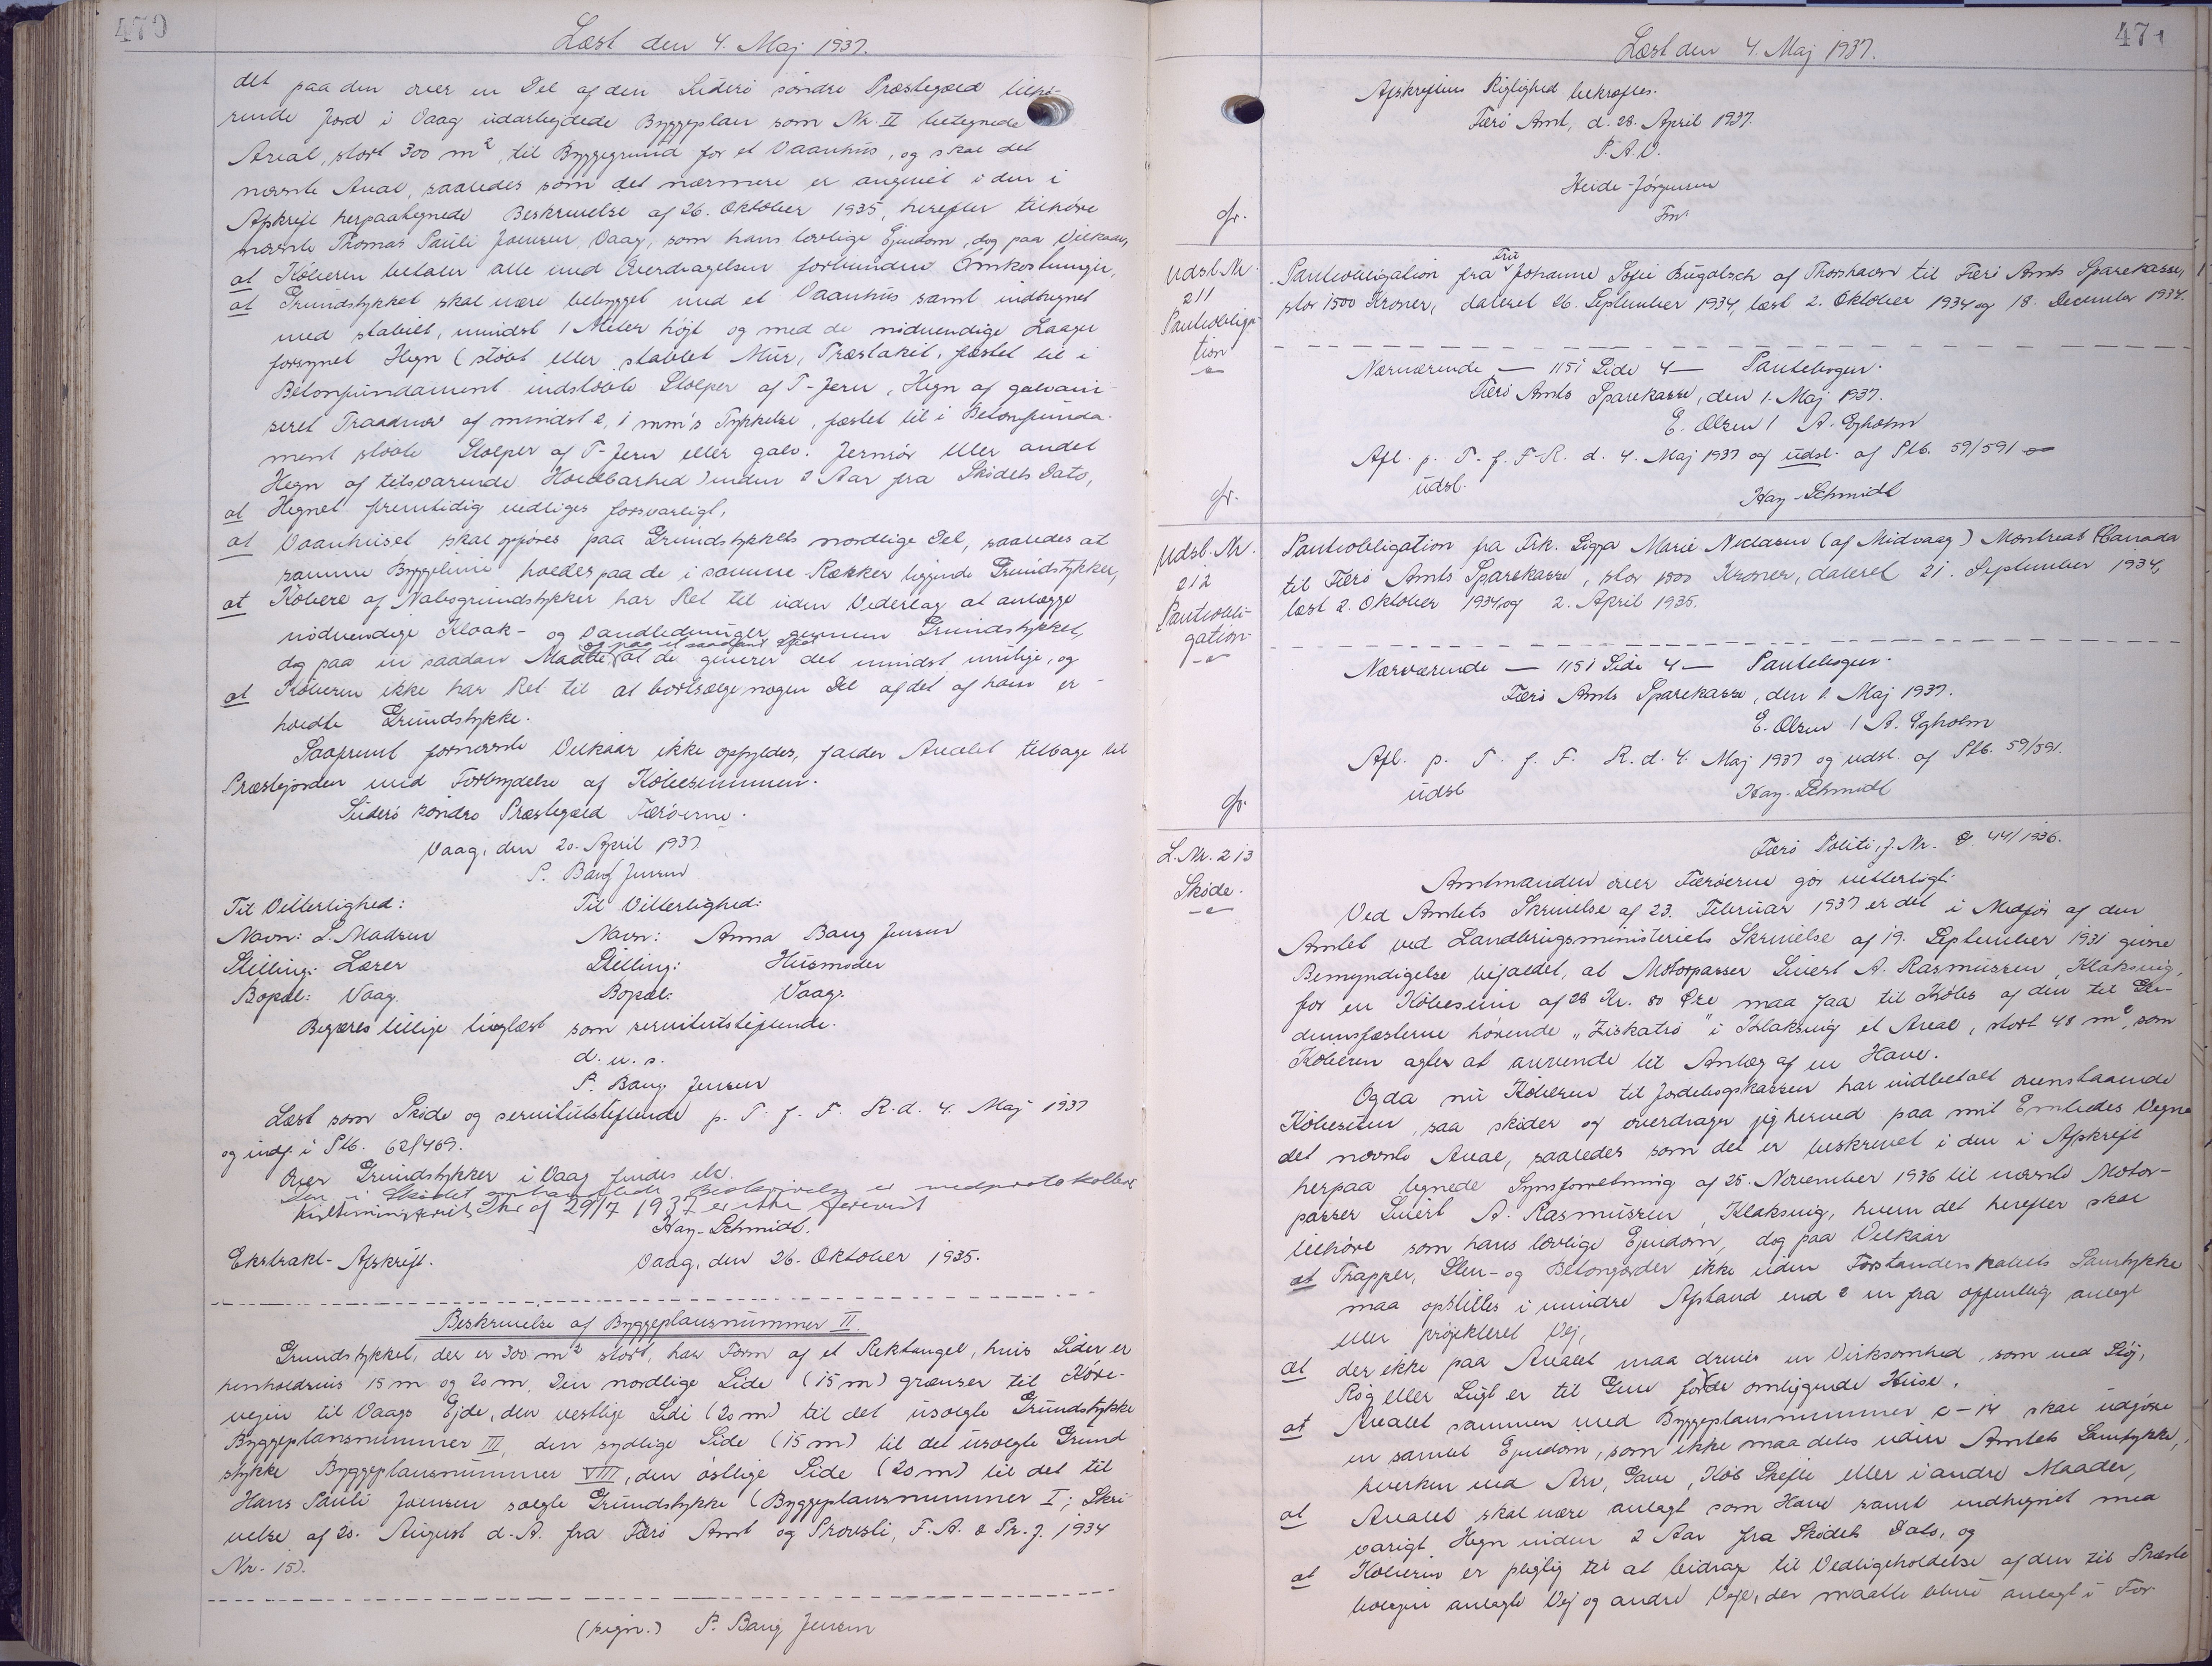 470
Læst den 4. Maj 1937.
det paa den over en Del af den Suderø søndre Præstegæld tilhø-
rende Jord i Vaag udarbejdede Byggeplan som Nr. II betegnede
Areal, stort 300 m², til Byggegrund for et Vaanhus, og skal det
nævnte Areal, saaledes som det nærmere er angivet i den i
Afskrift herpaategnede Beskrivelse af 26. Oktober 1935, herefter tilhøre
nævnte Thomas Pauli Joensen, Vaag, som hans lovlige Ejendom, dog paa Vilkaar,
at Køberen betaler alle med Overdragelsen forbundne Omkostninger,
at Grundstykket skal være bebygget med et Vaanhus samt indhegnet
med stabilt, mindst 1 Meter højt og med de nødvendige Laager
forsynet Hegn (støbt eller stablet Mur, Træstakit, fæstet til i
Betonfundament indstøbte Stolper af T-Jern, Hegn af galvani-
seret Traadnet af mindst 2,1 mm's Tykkelse, fæstet til i Betonfunda-
ment støbte Stolper af T-Jern eller galv. Jernrør eller andet
Hegn af tilsvarende Holdbarhed) inden 2 Aar fra Skødets Dato,
at Hegnet fremtidig vedliges forsvarligt,
at Vaanhuset skal opføres paa Grundstykkets nordlige Del, saaledes at
samme Byggelinie holdes paa de i samme Rækker liggende Grundstykker,
at Købere af Nabogrundstykker har Ret til uden Vederlag at anlægge
nødvendige Kloak- og Vandledninger gennem Grundstykket,
og paa et saadant Sted
dog paa en saadan Maade at de generer det mindst mulige, og
at Køberen ikke har Ret til at bortsælge nogen Del af det af ham er-
hvedte Grundstykke.
Saafremt fornævnte Vilkaar ikke opfyldes, falder Arealet tilbage til
Præstejorden med Fortrydelse af Købesummen.
Suderø søndre Præstegæld Færøerne.
Vaag, den 20. April 1937
P. Bang Jensen
Til Vitterlighed: Til Vitterlighed:
Navn: L. Madsen Navn: Anna Bang Jensen
Stilling: Lærer Stilling: Husmoder
Bopæl: Vaag. Bopæl: Vaag.
Begæres tillige tinglæst som servitutstiftende.
d. u. s.
P. Bang Jensen
Læst som Skøde og servitutstiftende p. T. f. F. R. d. 4. Maj 1937
og indf. i Ptb. 62/469.
Over Grundstykker i Vaag findes etc.
Den i Skødet omhandlede Beskrivelse er nedprotokolleret
Kultusminifteriets Skr af 29/7 1937 er ikke forevist
Kay-Schmidt.
Ekstrakt-Afskrift. Vaag, den 26. Oktober 1935.
Beskrivelse af Byggeplansnummer II.
Grundstykket, der er 300 m² stort, har Form af et Rektangel, hvis Sider er
henholdsvis 15 m og 20 m. Den nordlige Side (15 m) grænser til Køre-
vejen til Vaags Ejde, den vestlige Side (20 m) til det usolgte Grundstykke
Byggeplansnummer III, den sydlige Side (15 m) til det usolgte Grund
stykke Byggeplansnummer VIII, den østlige Side (20 m) til det til
Hans Pauli Joensen solgte Grundstykke (Byggeplansnummer I; Skri
velse af 20. August d. A. fra Færø Amt og Provsti, F.A. & Pr. J. 1934
Nr. 15).
(sign.) P. Bang Jensen
471
Læst den 4. Maj 1937.
Afskriftens Rigtighed bekræftes.
Færø Amt, d. 28. April 1937.
P. A. V.
Heide-Jørgensen
Fm.
Gr.
Udsl. Nr.
211
Pantobliga-
tion
Pantobligation fra Fru Johanne Sofie Bugalsch af Thorshavn til Færø Amts Sparekasse,
stor 1500 Kroner, dateret 26. September 1934, læst 2. Oktober 1934 og 18. December 1934.
Nærværende — 1151 Side 4 — Pantebogen.
Færø Amts Sparekasse, den 1. Maj 1937.
E. Olsen / A. Egholm
Afl. p. T. f. F. R. d. 4. Maj 1937 og udsl. af Ptb. 59/591
udsl.
Kay-Schmidt
Gr.
Udsl. Nr.
212
Pantobli-
gation
Pantobligation fra Frk. Sigga Marie Niclasen (af Midvaag) Montreal Canada
til Færø Amts Sparekasse, stor 1500 Kroner, dateret 21. September 1934,
læst 2. Oktober 1934 og 2. April 1935.
Nærværende — 1151 Side 4 — Pantebogen.
Færø Amts Sparekasse, den 1. Maj 1937.
E. Olsen / A. Egholm
Afl. p. T. f. F. R. d. 4. Maj 1937 og udsl. af Ptb. 59/591.
udsl
Kay-Schmidt
Gr.
L. Nr. 213
Skøde.
Færø Politi, J. Nr. 44/1936.
Amtmanden over Færøerne gør vitterligt:
Ved Amtets Skrivelse af 23. Februar 1937 er det i Medfør af den
Amtet ved Landbrugsministeriets Skrivelse af 19. September 1931 givne
Bemyndigelse bifaldet, at Motorpasser Sivert A. Rasmussen, Klaksvig,
for en Købesum af 28 Kr. 80 Øre maa faa til Købs af den til Ej-
domsfæsterne hørende „Ziskatrø" i Klaksvig et Areal, stort 48 m², som
Køberen agter at anvende til Anlæg af en Have.
Og da nu Køberen til Jordebogskassen har indbetalt ovenstaaende
Købesum, saa skøder og overdrager jeg herved paa mit Embedes Vegne
det nævnte Areal, saaledes som det er beskrevet i den i Afskrift
herpaa tegnede Synsforretning af 25. November 1936 til nævnte Motor-
passer Sivert A. Rasmussen, Klaksvig, hvem det herefter skal
tilhøre som hans lovlige Ejendom, dog paa Vilkaar
at Trapper, Sten- og Betongærder ikke uden Forstanderskabets Samtykke
maa opstilles i mindre Afstand end 2 m fra offentlig anlagt
eller projekteret Vej,
at der ikke paa Arealet maa drives en Virksomhed, som ved Støj,
Røg eller Lugt er til Gene for de omliggende Huse,
at Arealet sammen med Byggeplansnummer c-14 skal udgøre
en samlet Ejendom, som ikke maa deles uden Amtets Samtykke,
hverken ved Arv, Gave, Køb Skifte eller i andre Maader,
at Arealet skal være anlagt som Have samt indhegnet med
varigt Hegn inden 2 Aar fra Skødets Dato, og
at Køberen er pligtig til at bidrage til Vedligeholdelse af den til Præste
boligen anlagte Vej og andre Veje, der maatte blive anlagt i For